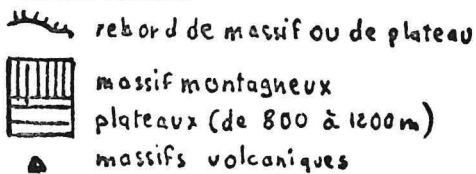 rebord de massif ou de plateau
massif montagneux
plateaux (de 800 à 1200m)
massifs volcaniques